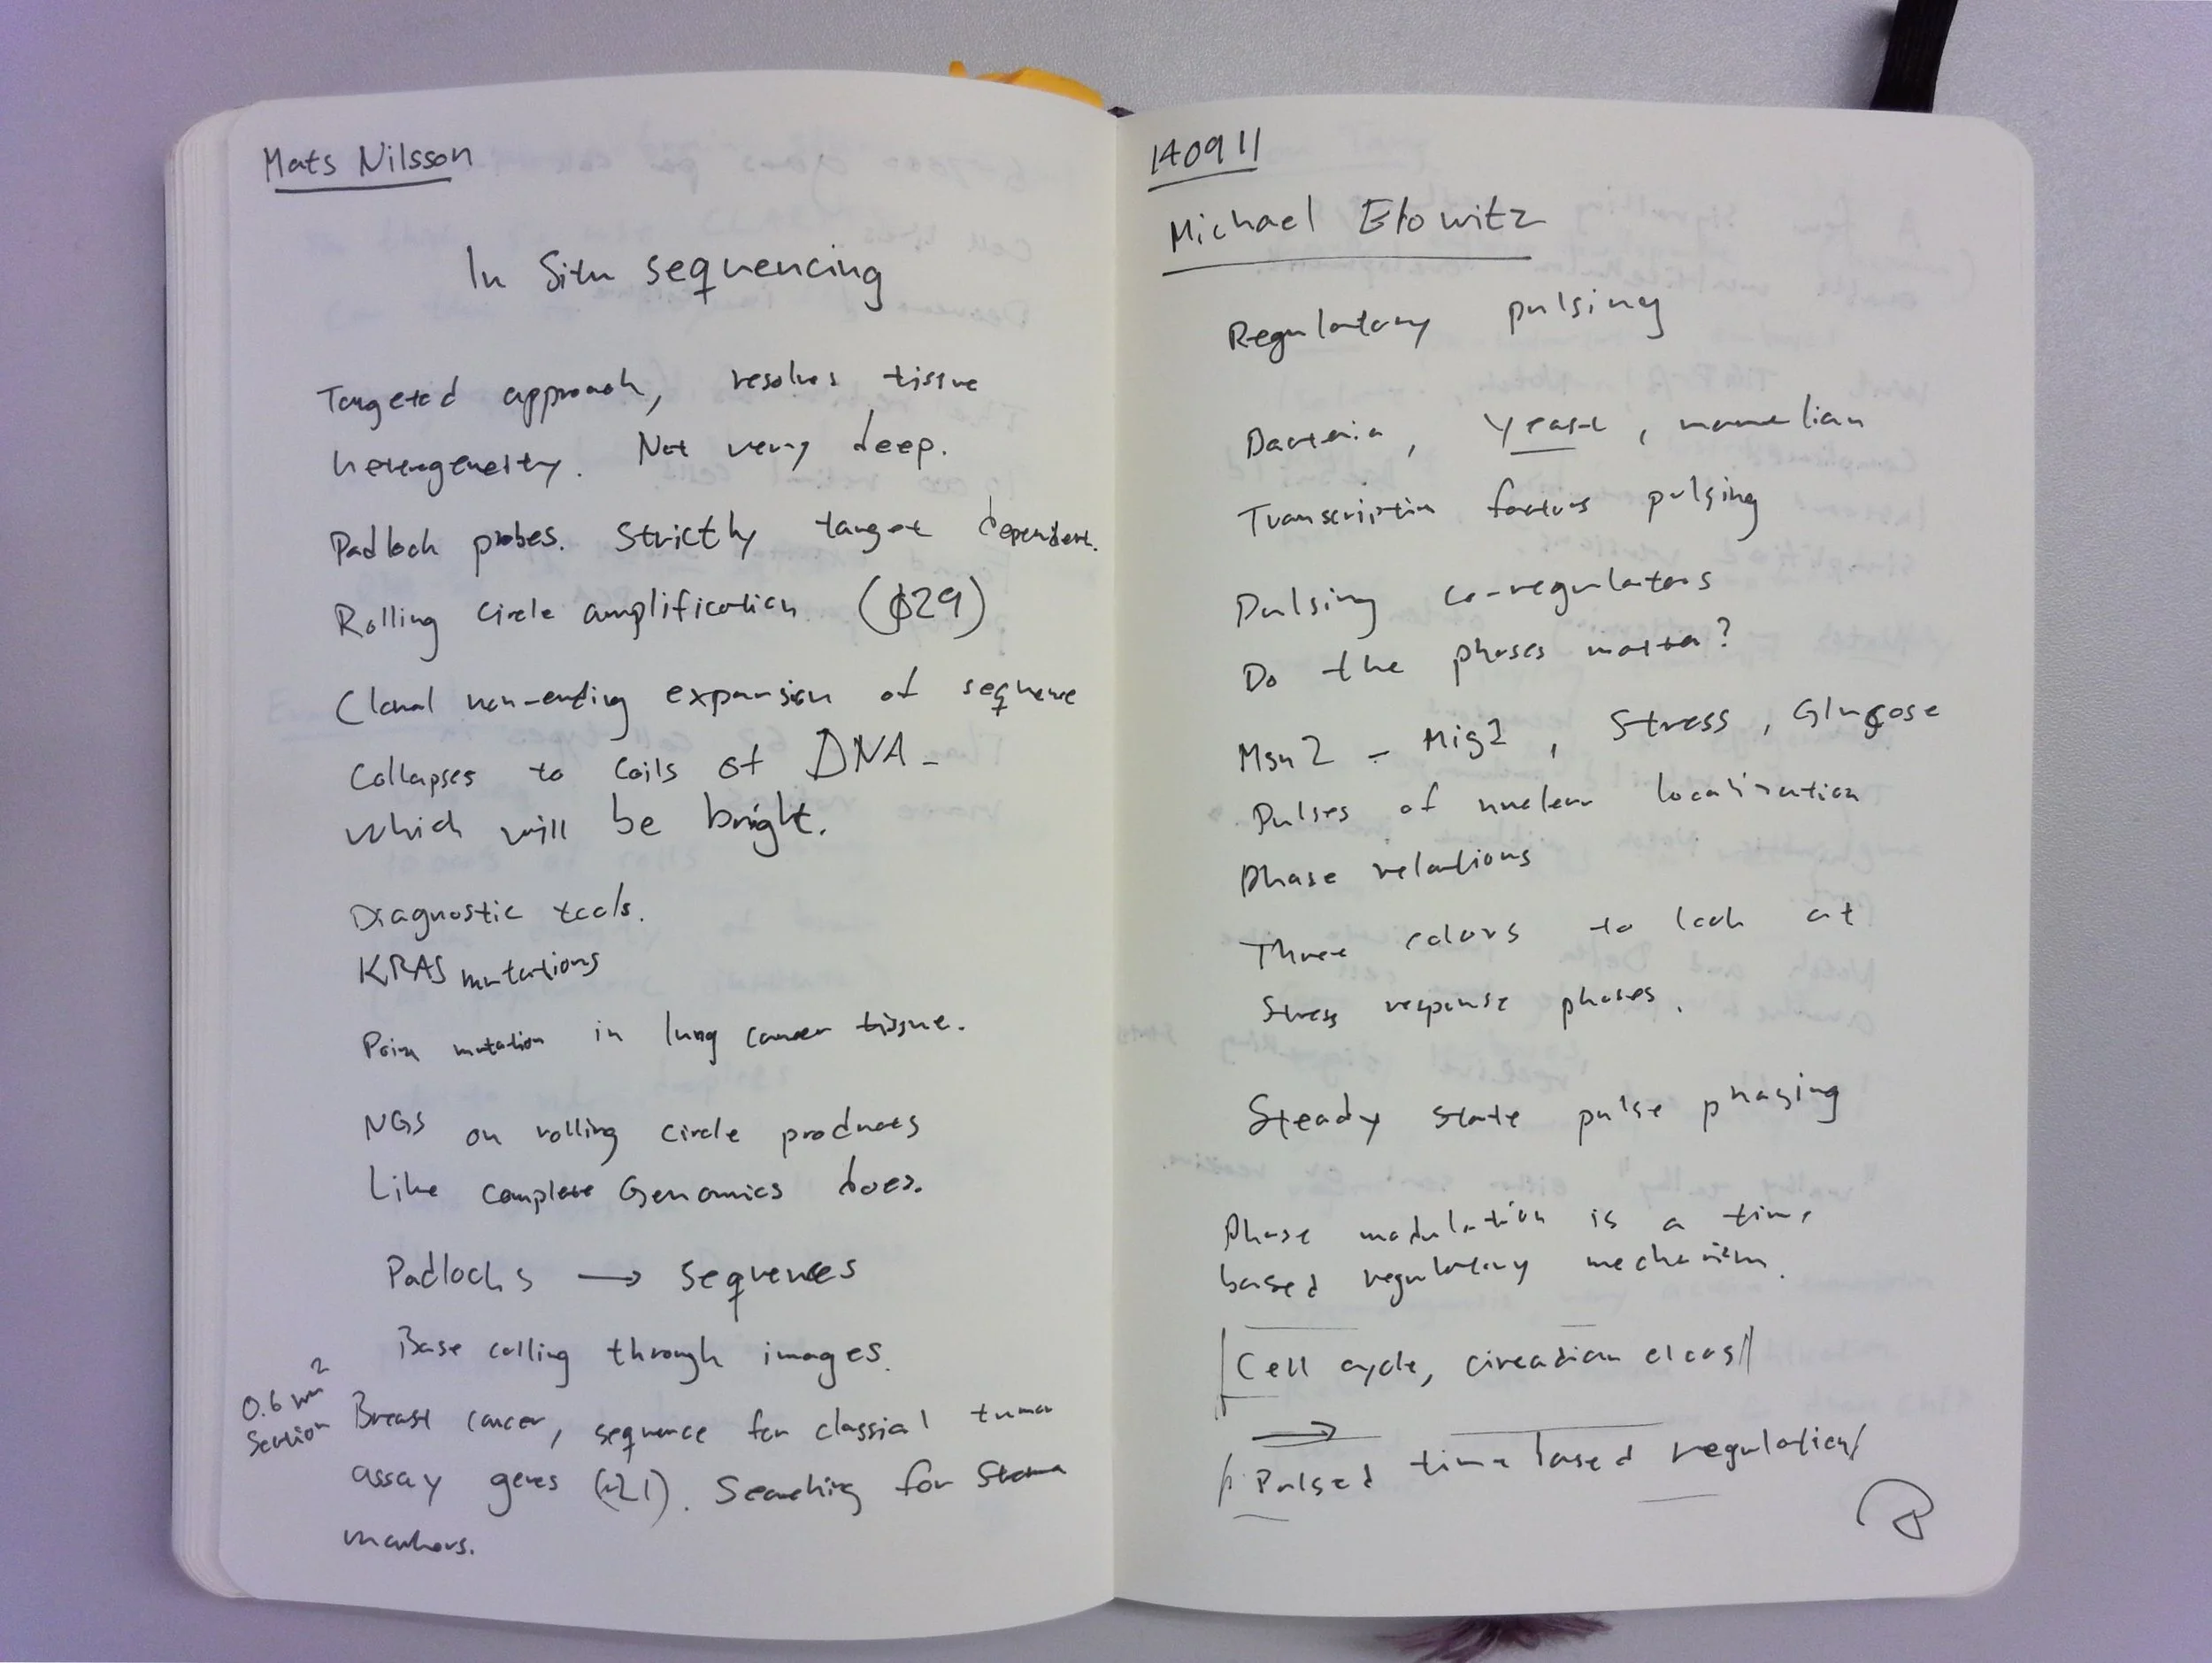 Mats Nilsson
In Situ sequencing
Targeted approach, resolves tissue
heterogeneity. Not very deep.
Padlock probes. Strictly target dependent.
Rolling circle amplification (ϕ29)
Clonal non-ending expansion of sequence
Collapses to coils of DNA -
which will be bright.
Diagnostic tools.
KRAS mutations
Poin mutation in lung cancer tissue.
NGS on rolling circle products
Like complete Genomics does.
Padlocks → sequences
Base calling through images.
0.6 mm²
section
Breast cancer, sequence for classial tumor
assay genes (21). Searching for
markers.
140911
Michael Elowitz
Regulatory pulsing
Bacteria, Yeast, mamelian
Transcription factors pulsing
Pulsing co-regulators
Do the phases matter?
Msn2 - Mig1, Stress, Glucose
Pulses of nuclear localisation
Phase relations
Three colors to look at
Stress response phases.
Steady state pulse phasing
Phase modulation is a time
based regulatory mechanism.
Cell cycle, circadian
→
Pulsed time based regulation